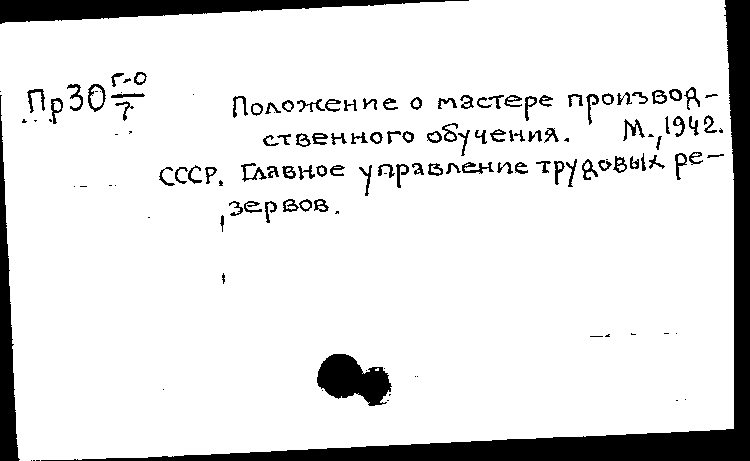 Пр30 г-о/7
Положение о мастере производ-
ственного обучения. М., 1942.
СССР. Главное управление трудовых ре-
зервов.